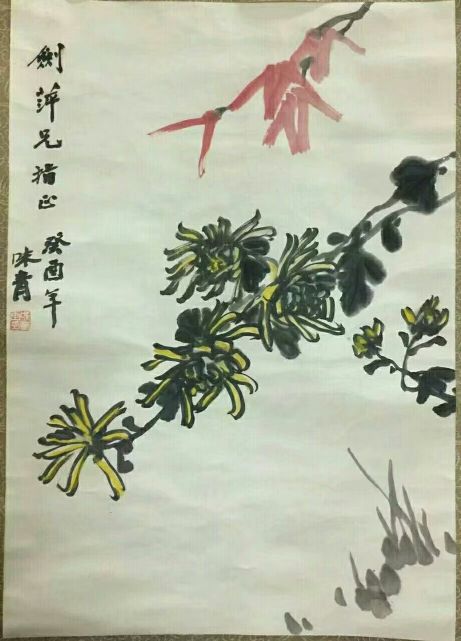 劍萍兄指正
癸酉年
味青